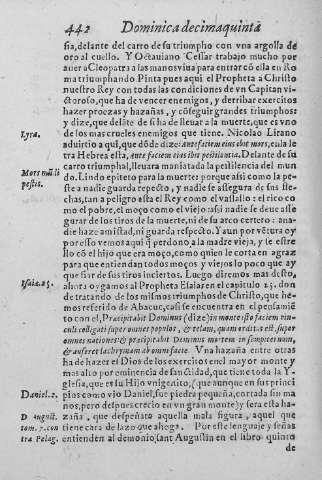 442 Dominica decimaquinta
sia, delante del carro de su triumpho con vna argolla de
oro al cuello. Y Octauiano Cessar trabajo mucho por
auer a Cleopatra a las manos viua para entrar cõ ella en Ro
ma triumphando Pinta pues aqui el Propheta a Christo
nuestro Rey con todas las condiciones de vn Capitan vi-
ctoroso, que ha de vencer enemigos, y derribar exercitos
hazer proezas y hazañas, y cõseguir grandes triumphos:
y dize, que delãte de si ha de lleuar a la muerte, que es vno
Lyra.
de los mas crueles enemigos que tiene. Nicolao Lirano
aduirtio a qui, que dõde dize: ante faciem eius ibit mors, esta le
tra Hebrea ella, ante faciem eius ibit pestilentia. Delante de su
carro triumphal, lleuara maniatada la pestilencia del mun
Mors
pestis.
do. Lindo epiteto para la muerte: porque assi como la pe-
ste a nadie guarda repecto, y nadie se assegura de sus fle-
chas, tan a peligro esta el Rey como el vassallo: el rico co
mo el pobre, el moço como el viejo: assi nadie se deue asse
gurar de los tiros de la muerte, ni de su arco certero: ana-
die haze amistad, ni guarda respecto. Y aun por vẽtura oy
por esso vemos aqui q̃ perdono a la madre vieja, y se estre
llo cõ el hijo que era moço, como quien le corta en agraz
para que entiendan todos moços y viejos lo poco que ay
que fiar de sus tiros inciertos. Luego diremos mas desto,
Isaiæ.25.
ahora oygamos al Propheta Elaias en el capitulo 25. don
de tratando de los mismos triumphos de Christo, que he-
mos referido de Abacuc, casi se encuentra en el pensamiẽ
to con el, Præcipitabit Dominus (dize) in monte isto faciem vin-
culi colligati super omnes populos, & telam, quam orditus est super
omnes nationes & præcipitabit Dominus mortem in sempiternum,
& auferet lachrymam ab omni facie. Vna hazaña entre otras
ha de hazer el Dios de los exercitos en el mayor monte y
mas alto por eminencia de sanctidad, que tiene toda la Y-
glesia, que es su Hijo vnigenito, (que aunque en sus princi
Daniel.2.
pios como vio Daniel, fue piedra pequeña, cortada sin ma
nos, pero despues crecio en vn gran monte) y sera esta ha-
D August.
zaña, que despeñara aquella mala figura, aquel que
tom. 7. con
tiene cara de lazo que ahoga. Por este lenguaje y señas
tra Pelag.
entienden al demonio, sant Augustin en el libro quinto
de